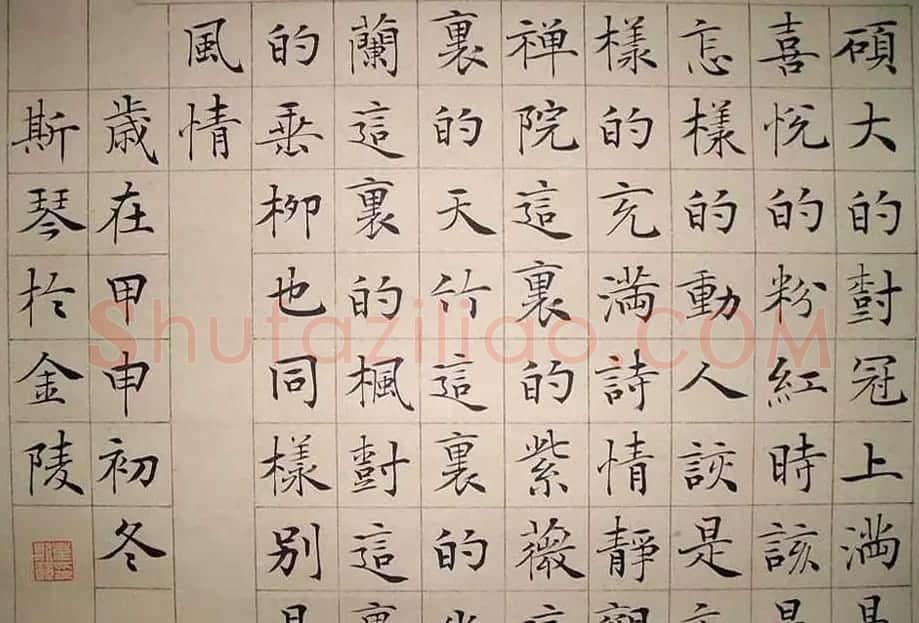 碩大的樹冠上滿是
喜悅的粉紅時該是
怎樣的動人該是
樣的充滿詩情靜觀
禅院這裏的紫薇這
裏的天竹這裏的
蘭這裏的楓樹這裏
的垂柳也同樣别是
風情
歲在甲申初冬
斯琴於金陵
Shufaziliao.COM